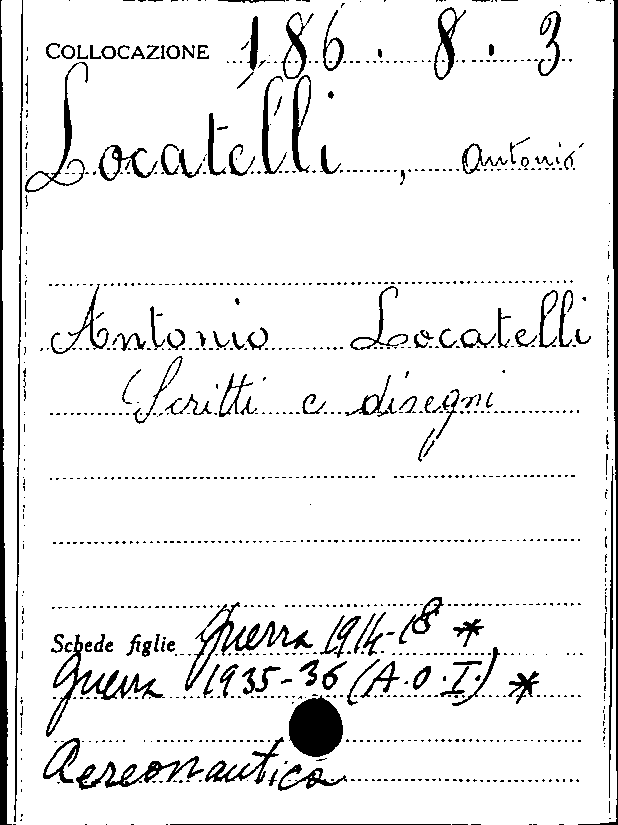 COLLOCAZIONE 186.8.3
Locatelli, Antonio
Antonio Locatelli
Scritti e disegni
Schede figlie Guerra 1914-18 *,
Guerra 1935-36 (A.O.I.) *
Aereonautica